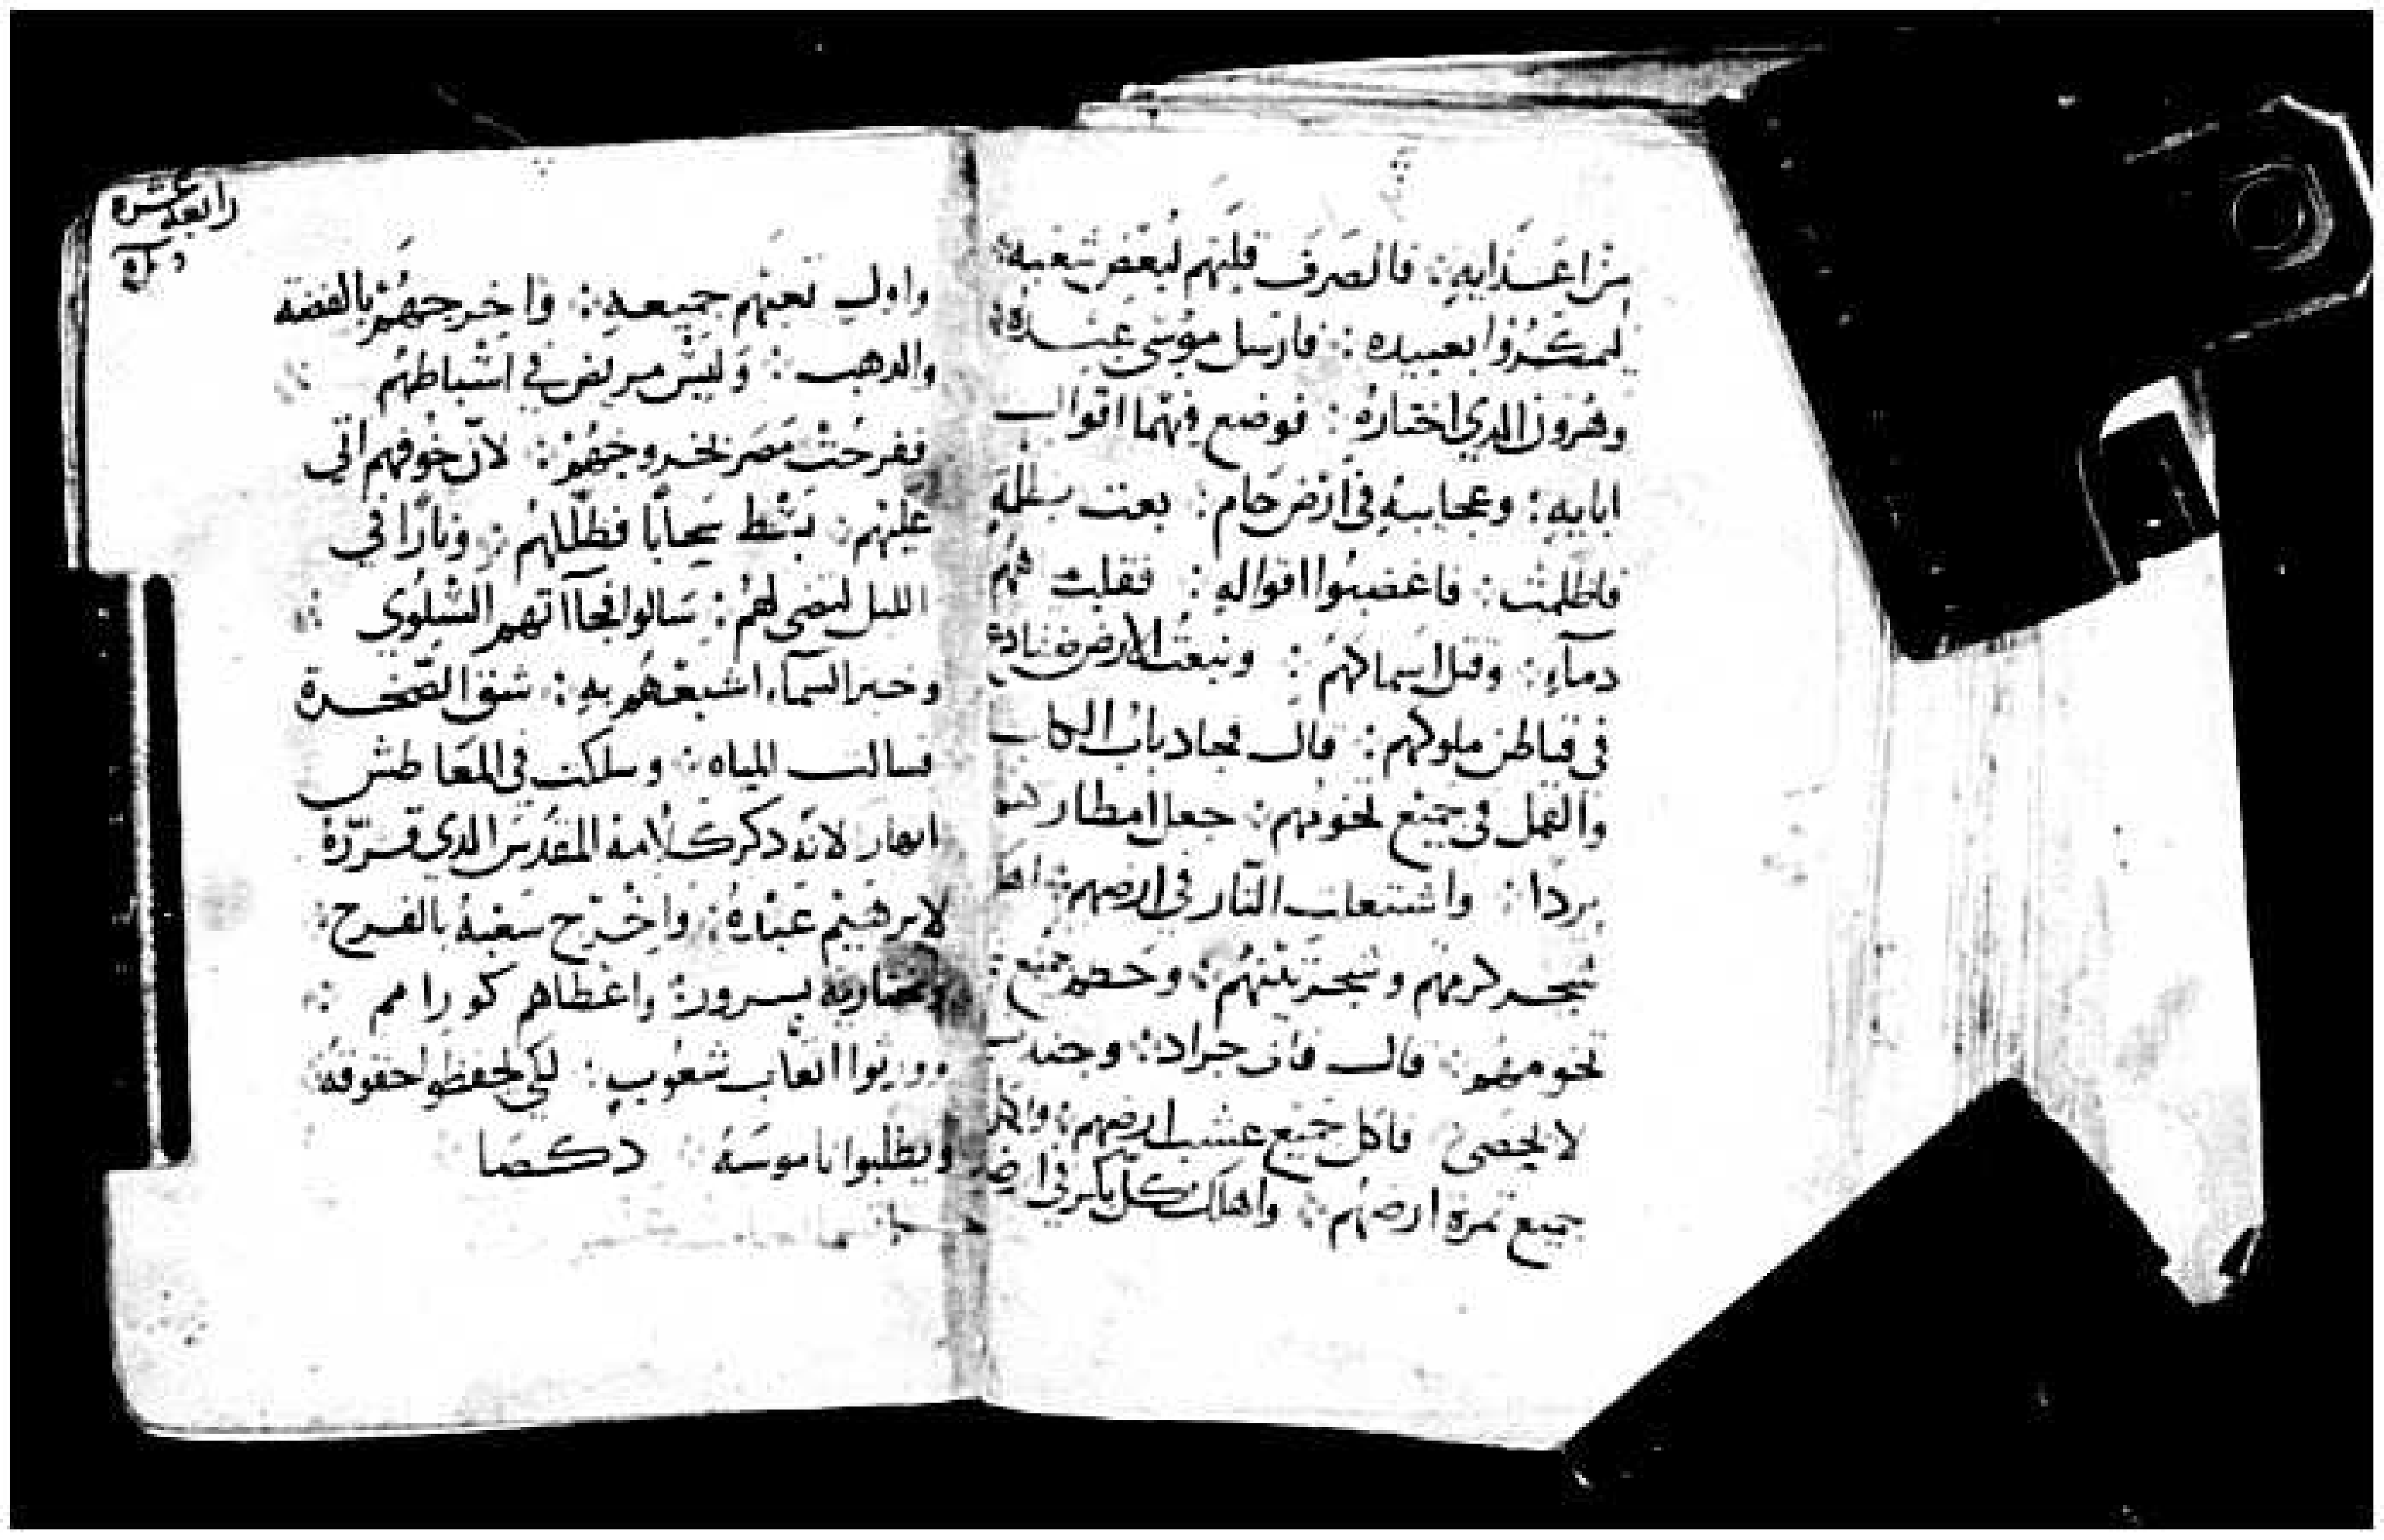 من اعدايه فانصرف قلبهم لبغض شعبه
ليمكروا بعبيده فارسل موسى عبده
وهرون الدي اختاره فوضع فيهما اقوال
اياته وعجايبه في ارض حام بعت ظلمة
فاظلمت فاغضبوا اقواله فقلب
دماء وقتل اسماكهم ونبعت الارض ضفادع
في قياطن ملوكهم قال فجا دباب الكلب
والقمل في جميع تخومهم جعل امطارهم
بردا واشتعلت النار في ارضهم
شجر كرمهم وشجر تينهم وحطم جميع
تخومهم قال فاتى جراد وجندب
لا يحصى فاكل جميع عشب ارضهم واكل
جميع تمرة ارضهم واهلك كل بكر في ارض
رابعة عشره
واول تعبهم جميعه واخرجهم بالفضة
والدهب وليس مريض في اسباطهم
ففرحت مصر بخروجهم لان خوفهم اتى
عليهم بسط سحابا فظللهم ونارا في
الليل لتضي لهم سالوا فجاآتهم السلوى
وخبز السماء اشبعهم به شق الصخرة
فسالت المياه وسلكت في المعاطش
انهار لانه دكر كلامه المقدس الدي قرره
لابرهيم عبده واخرج شعبه بالفرح
ومختاريه بسرور واعطاهم كور امم
وورتوا اتعاب شعوب لكي يحفظوا حقوقه
ويطلبوا ناموسه دكصا